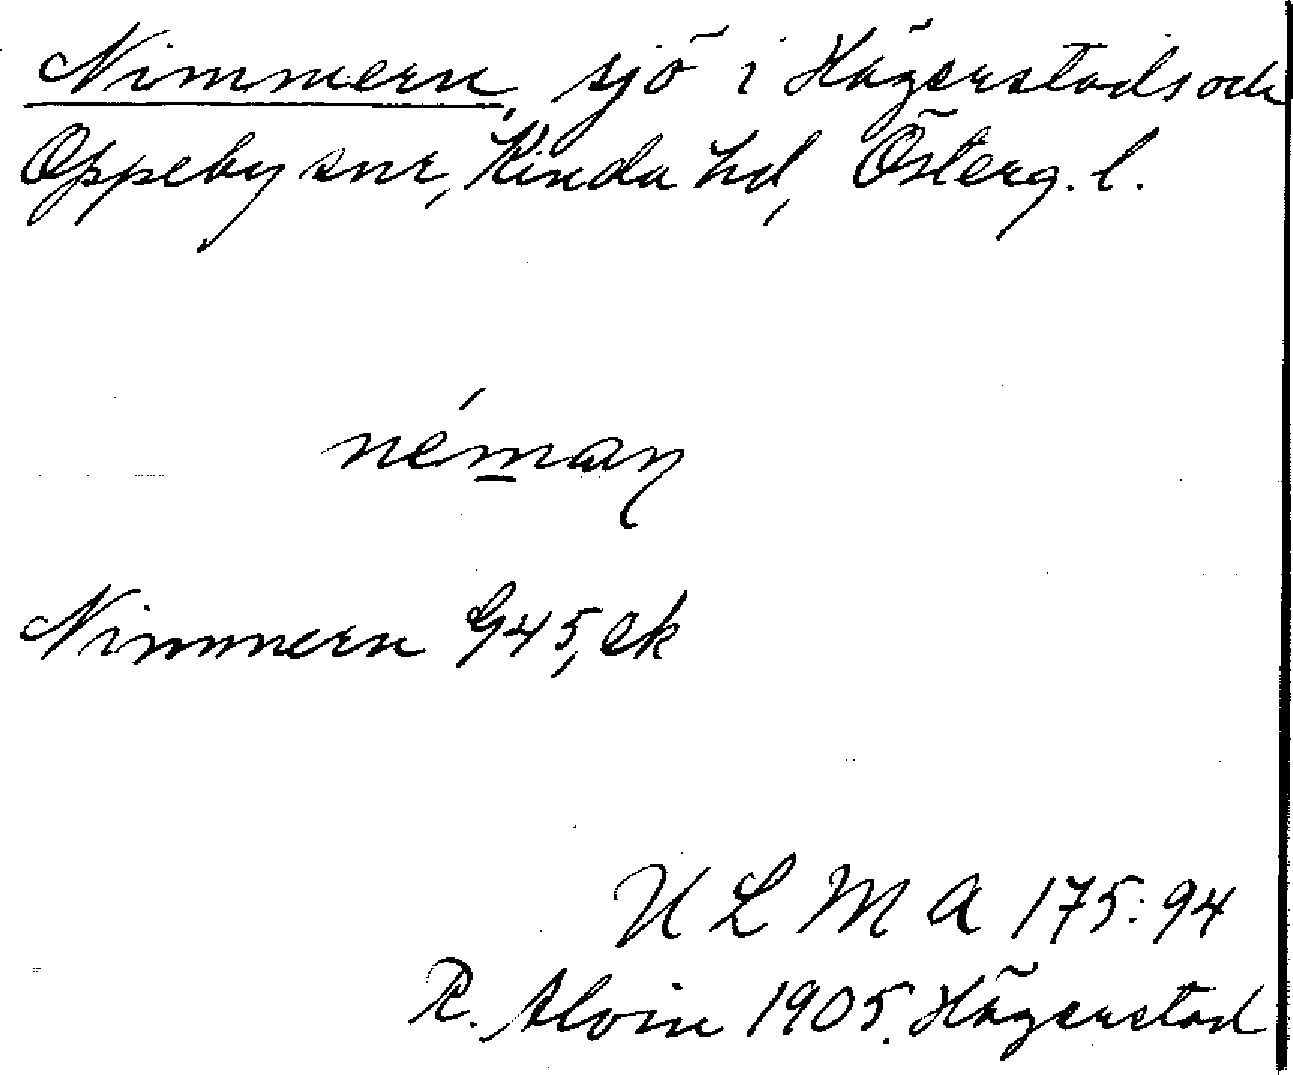 Nimmern, sjö i Hägerstads och
Oppeby snr, Kinda hd, Österg. l.
néman
Nimmern G45, ek
ULMA 175:94
R. Alvin 1905. Hägerstad